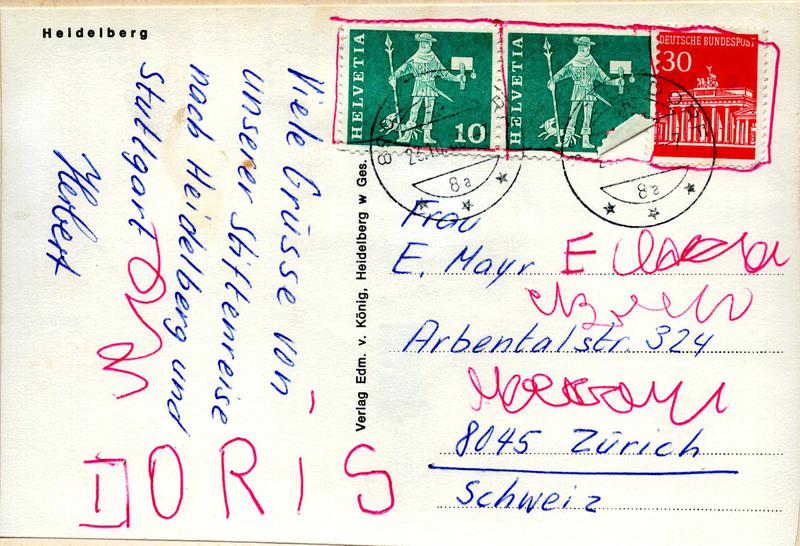 Heidelberg
Viele Grüsse von
unserer Stiftenreise
nach Heidelberg und
Stuttgart
Herbert
DORIS
Verlag Edm. v. König, Heidelberg w Ges.
HELVETIA
10
HELVETIA
DEUTSCHE BUNDESPOST
30
8a
8a
Frau
E. Mayr E
Arbentalstr. 324
8045 Zürich
Schweiz